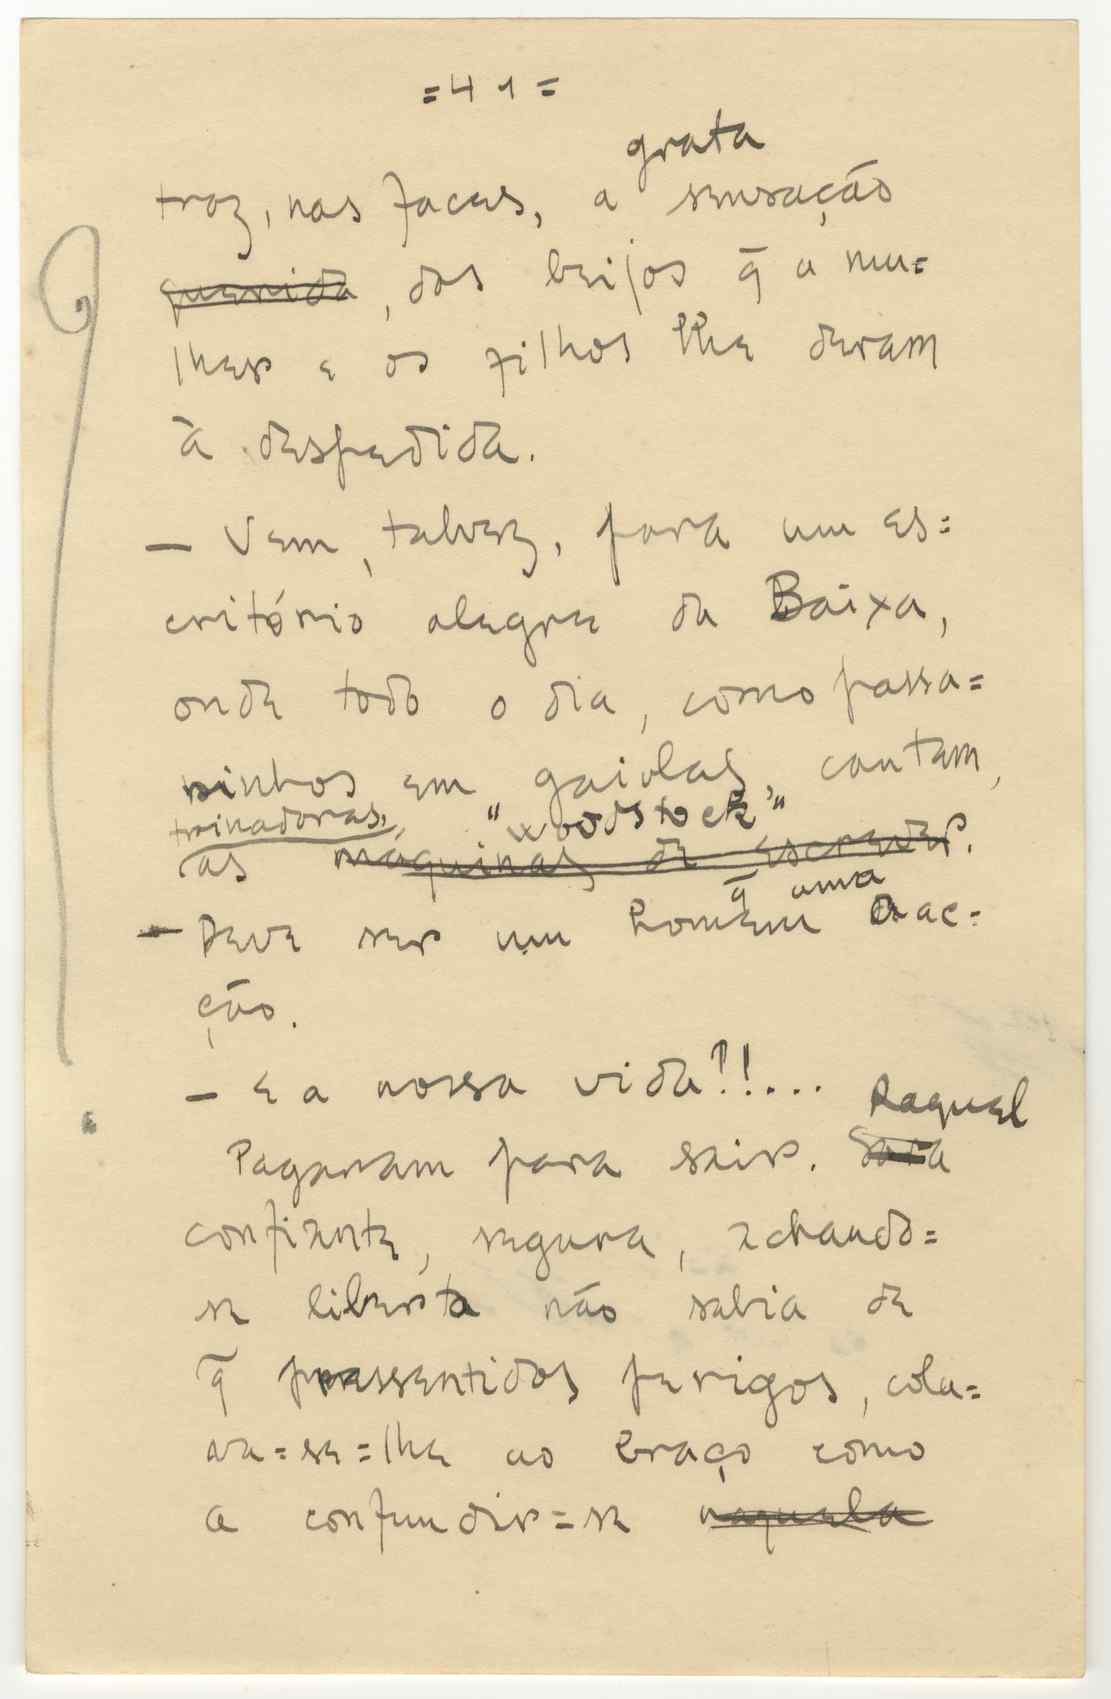 =41=
grata
traz, nas faces, a sensação
querida, dos beijos q̄ a mu=
lher e os filhos lhe deram
à despedida.
— Vem, talvez, para um es=
critório alegre da Baixa,
onde todo o dia, como passa=
rinhos em gaiolas, cantam,
trinadoras, "woodstock"
as máquinas de escrever.
q̄ uma
— Deve ser um homem a ac=
ção.
— E a nossa vida?!!...
Raquel
Pagaram para sair. Sara
confiante, segura, achando=
se liberta não sabia de
q̄ pressentidos perigos, cola=
va=se=lhe ao braço como
a confundir=se naquela